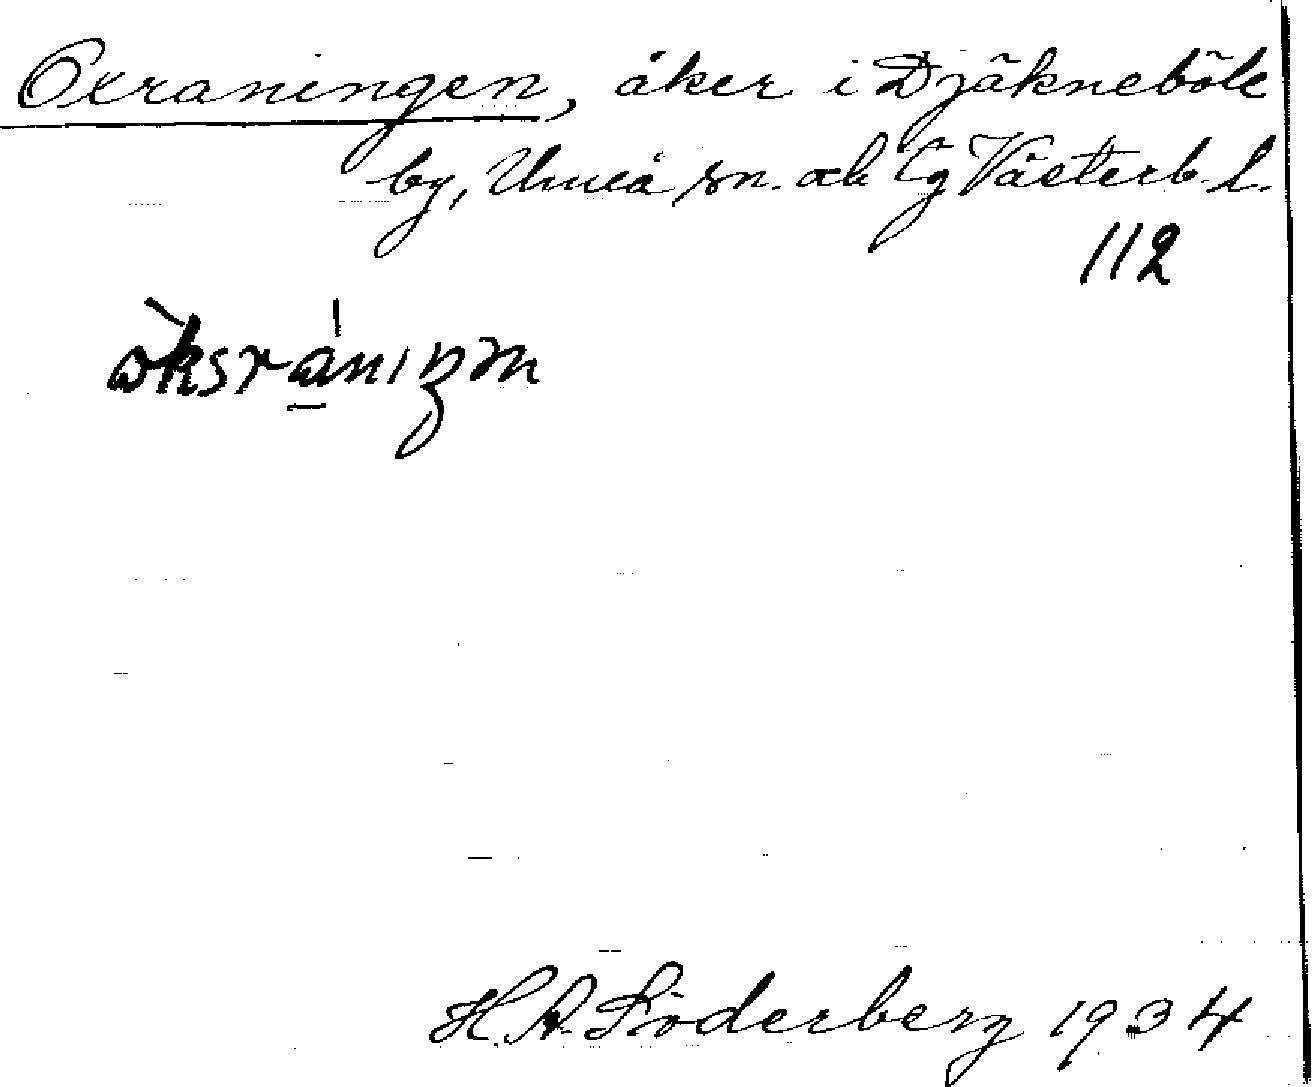 Oxraningen, åker i Djäkneböle
by, Umeå sn. och tg Västerb. l.
112
H. A. Söderberg 1934